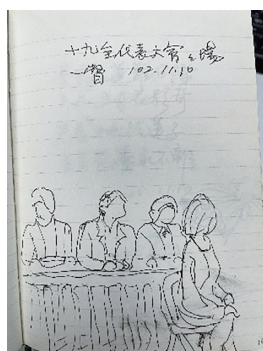 十九全代表大會之場
一瞥 102.11.10